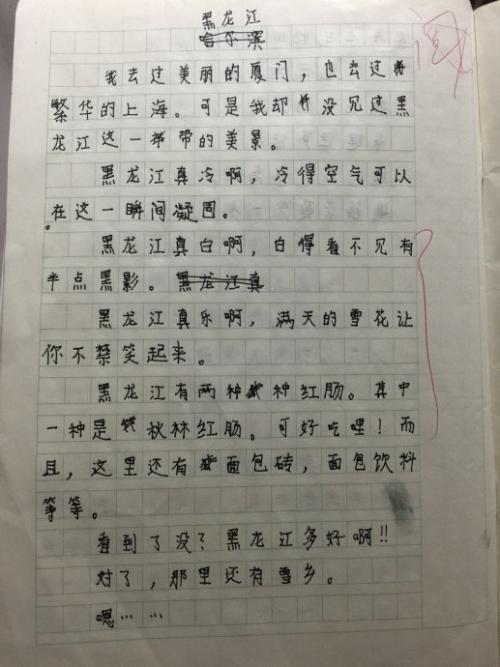 黑龙江
哈尔滨
我去过美丽的厦门，也去过
繁华的上海。可是我却没见过黑
龙江这一带的美景。
黑龙江真冷啊，冷得空气可以
在这一瞬间凝固。
黑龙江真白啊，白得看不见有
半点黑影。黑龙江真
黑龙江真乐啊，满天的雪花让
你不禁笑起来。
黑龙江有两种种红肠。其中
一种是秋林红肠。可好吃哩！而
且，这里还有面包砖，面包饮料
等等。
看到了没？黑龙江多好啊!!
对了，那里还有雪乡。
嗯……